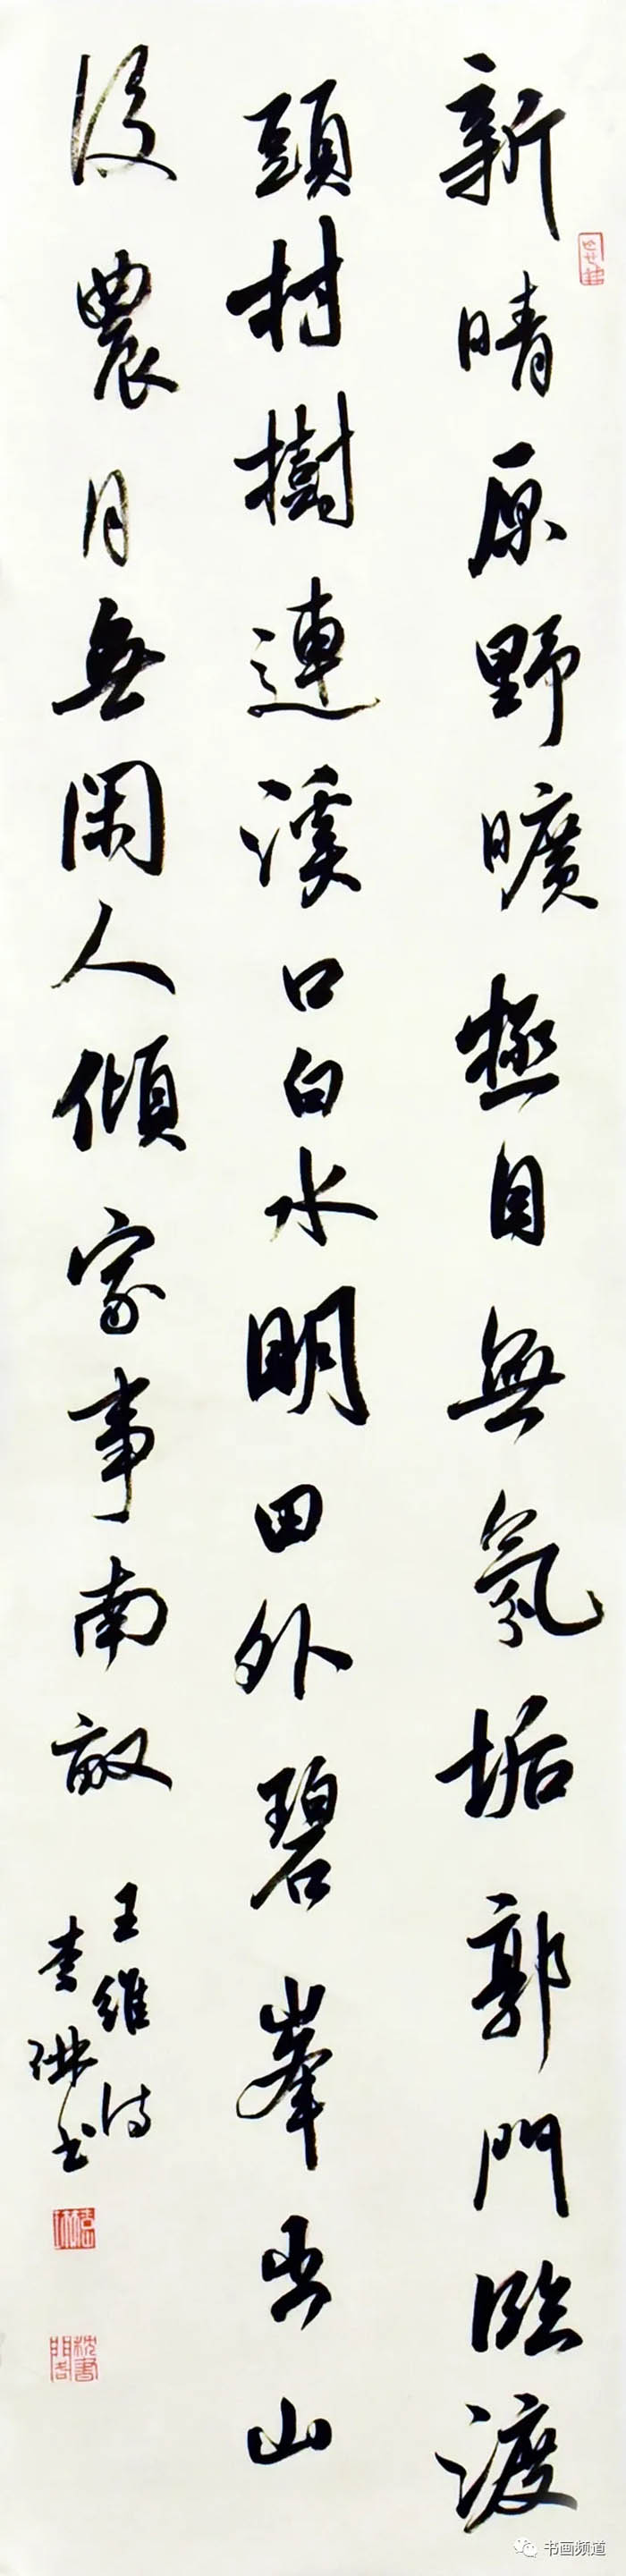 新晴原野曠極目無氛垢郭門臨渡
頭村樹連溪口白水明田外碧峯出山
後農月無閑人傾家事南畝
王維詩
李琳書
枕書閣
书画频道